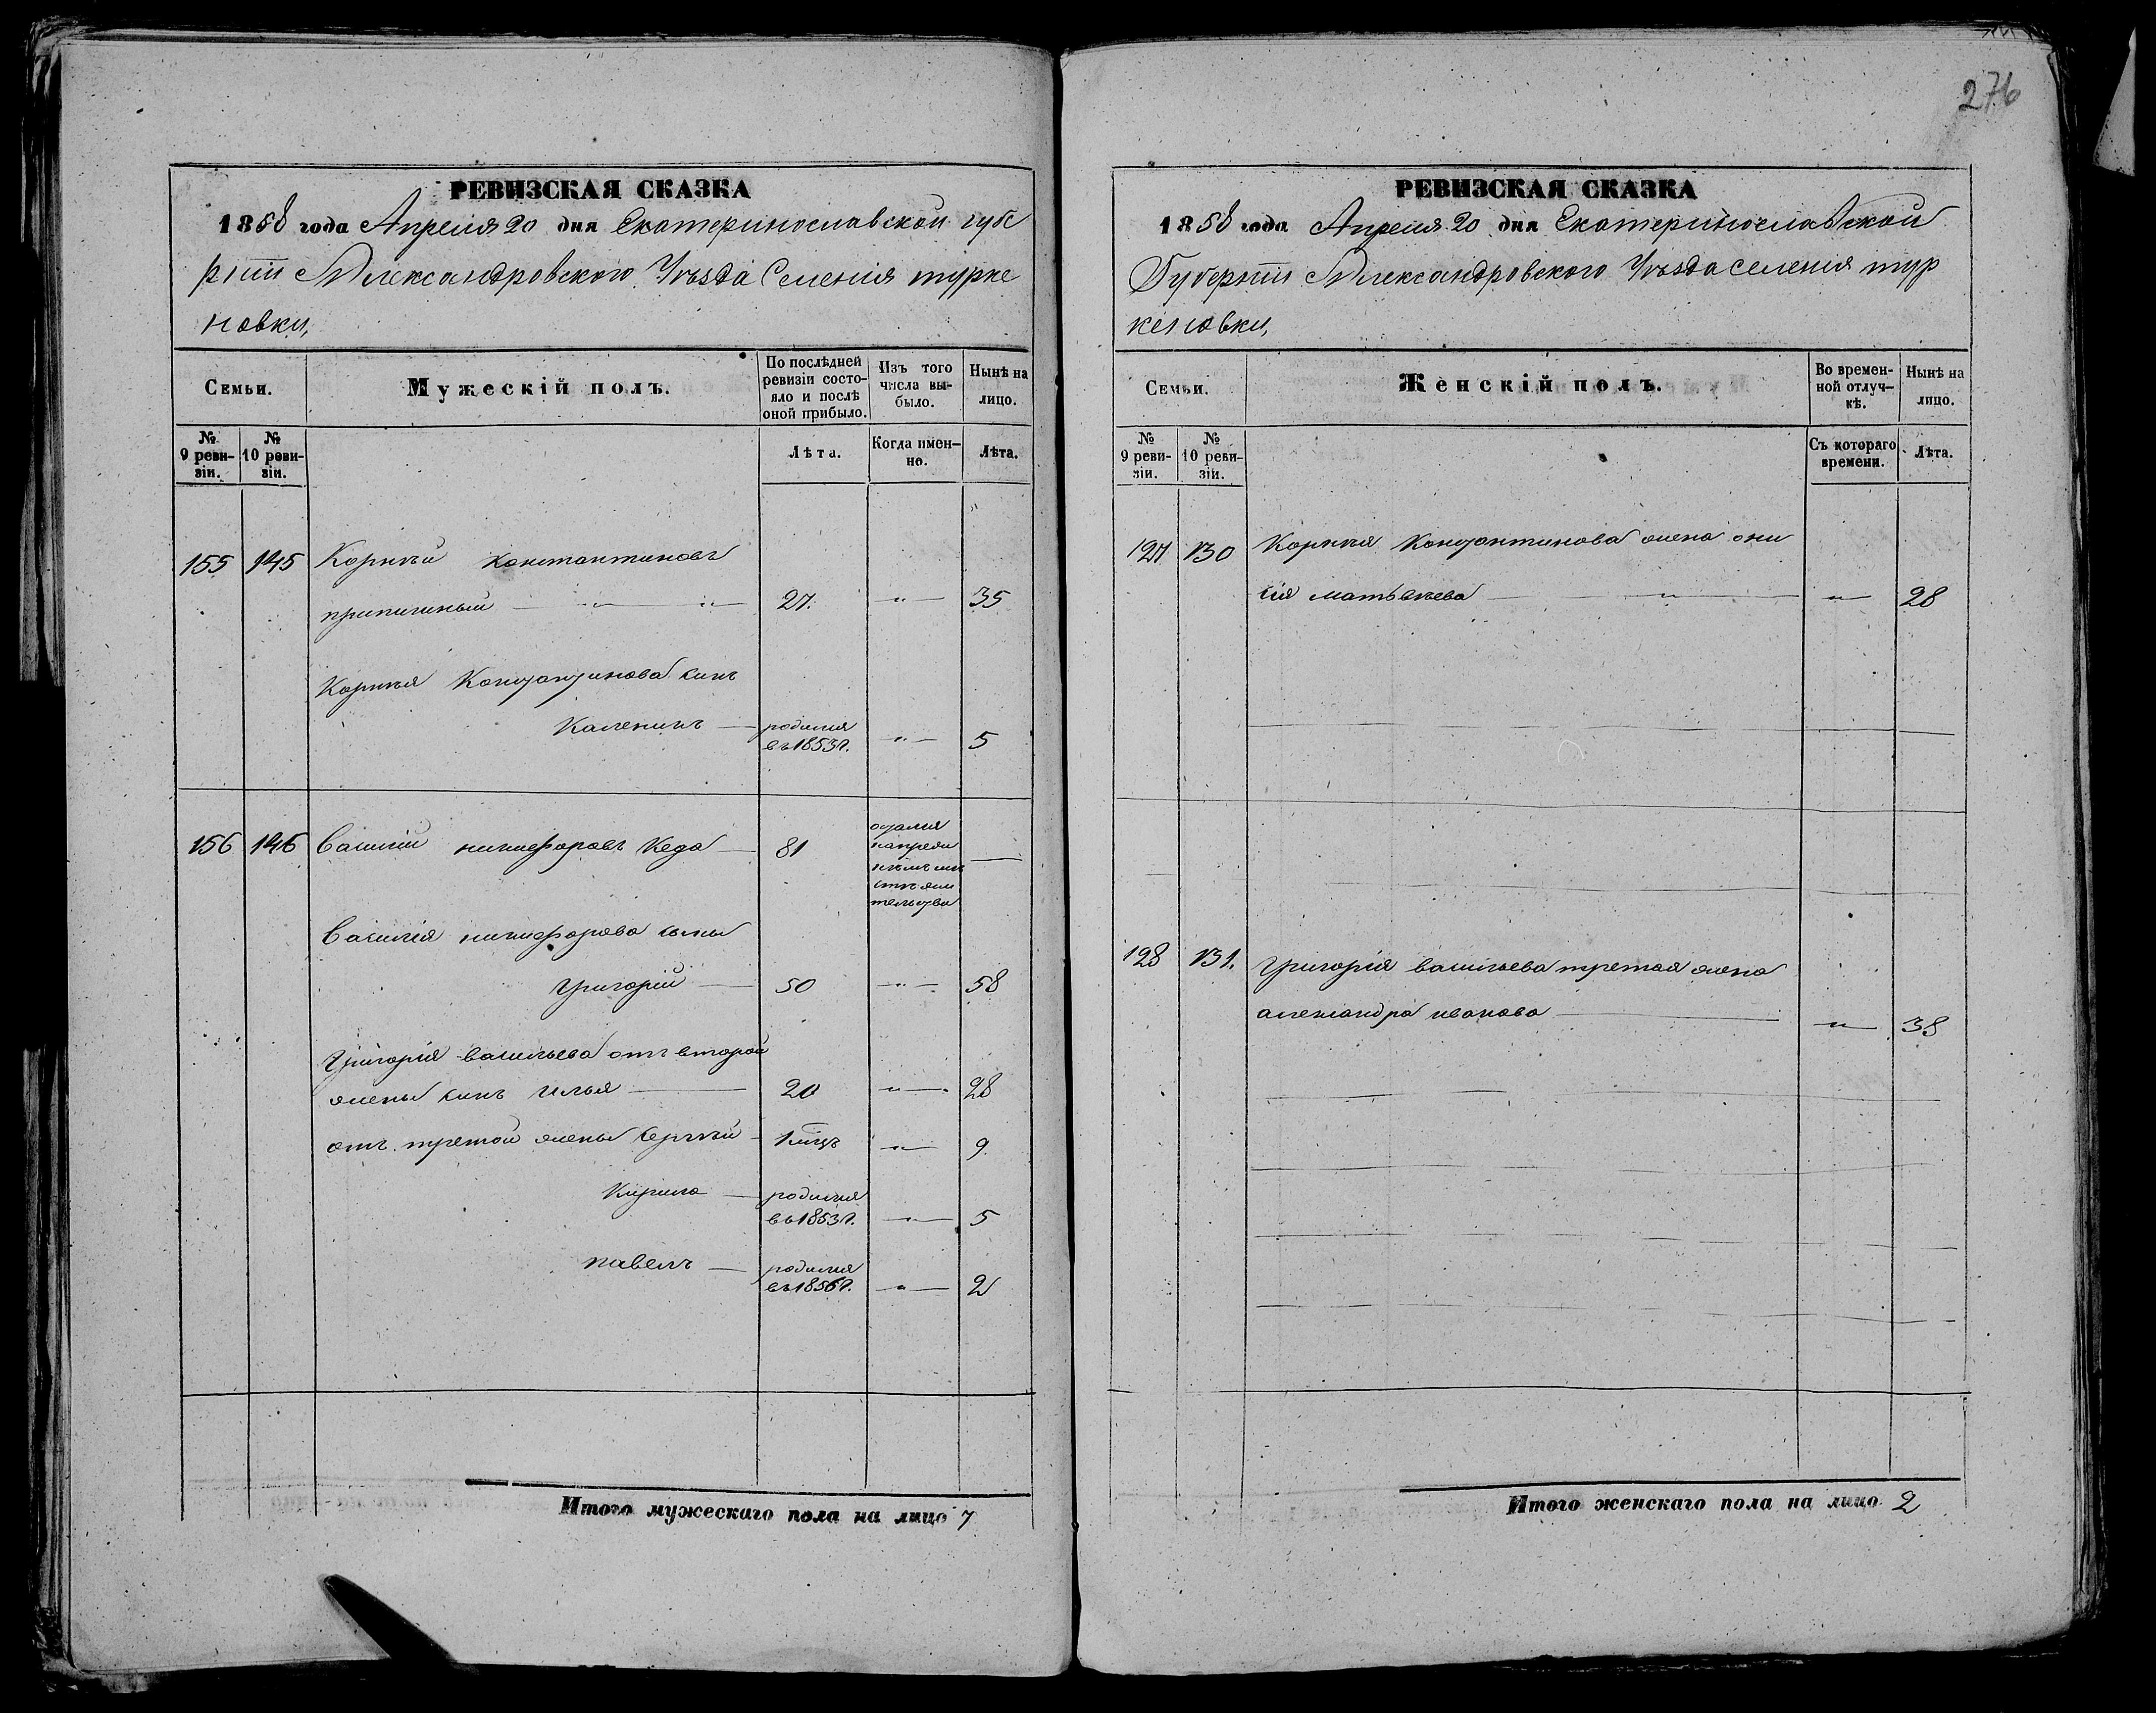 276
РЕВИЗСКАЯ СКАЗКА
1858 года Апреля 20 дня Екатеринославской губе
рніи Александровского Уѣзда Селенія турке
новки,
Семьи.
Мужескій полъ.
По послѣдней
ревизіи состо-
яло и послѣ
оной прибыло.
Изъ того
числа вы-
было.
Нынѣ на
лицо.
№
9 реви-
зіи.
№
10 реви-
зіи.
Лѣта.
Когда имен-
но.
Лѣта.
155 145 Корнѣй константиновъ
27. " 35
Корнѣя Константинова синъ
Каленикъ родился
въ 1853 г. " 5
156 146 Василій никифоровъ Кеда 81
Василія никифорова сыны
Григорій 50 " 58
Григорія васильева отъ второй
жены синъ Илья 20 " 28
отъ третой жены Сергѣй 1 мцъ " 9
Кирило родился
въ 1853 г. " 5
павелъ родился
въ 1856 г. " 2
Итого мужескаго пола на лицо 7
РЕВИЗСКАЯ СКАЗКА
1858 года Апреля 20 дня Екатеринославской
Губерніи Александровского Уѣзда селенія тур
кеновки,
Семьи.
Женскій полъ.
Во времен-
ной отлуч-
кѣ.
Нынѣ на
лицо.
№
9 реви-
зіи.
№
10 реви-
зіи.
Съ котораго
времени.
Лѣта.
127 130 Корнѣя Константинова жена они
сія матвѣева " 28
128 131. Григорія васильева третая жена
александра иванова " 38
Итого женскаго пола на лицо 2